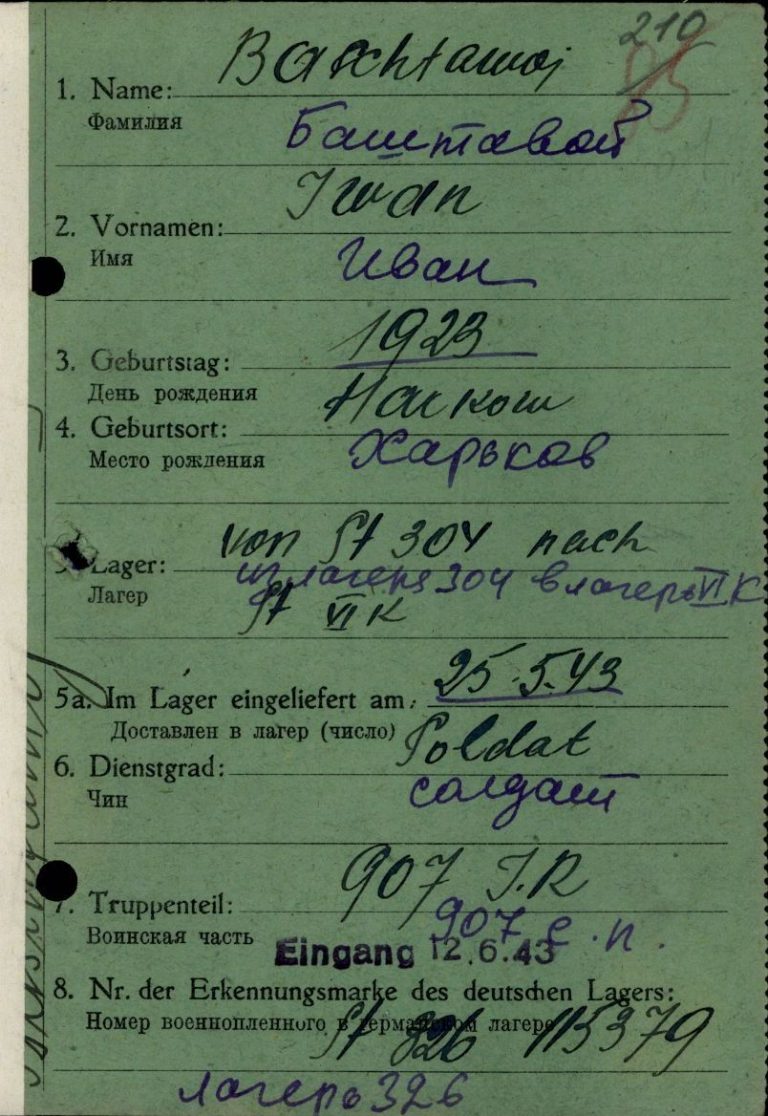 210
85
Baschtawoj
1. Name:
Фамилия
Баштавой
Iwan
2. Vornamen:
Имя
Иван
1923
3. Geburtstag:
День рождения
4. Geburtsort:
Место рождения
Харьков
von St 304 nach
Lager:
из лагеря 304 в лагерь VI K
Лагер
St VI K
25.5.43
5a. Im Lager eingeliefert am:
Доставлен в лагер (число)
Soldat
6. Dienstgrad:
Чин
солдат
907 I.R
7. Truppenteil:
907 с.п.
Воинская часть
Eingang 12.6.43
8. Nr. der Erkennungsmarke des deutschen Lagers:
Номер военнопленного в германском лагере
St 326 115379
лагерь 326